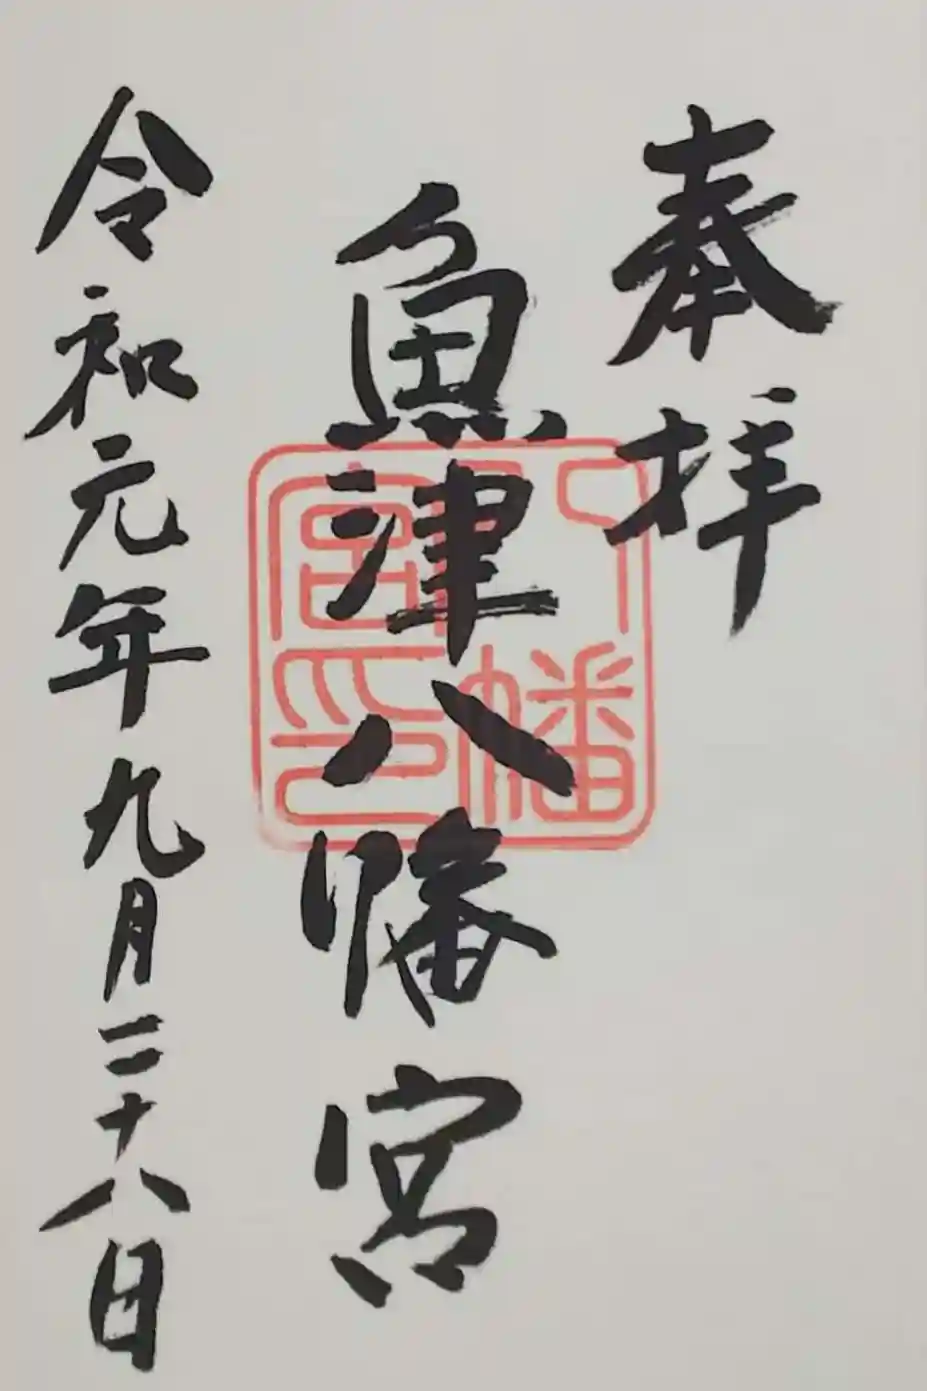 奉拝
魚津八幡宮
八幡宮印
令和元年九月二十八日